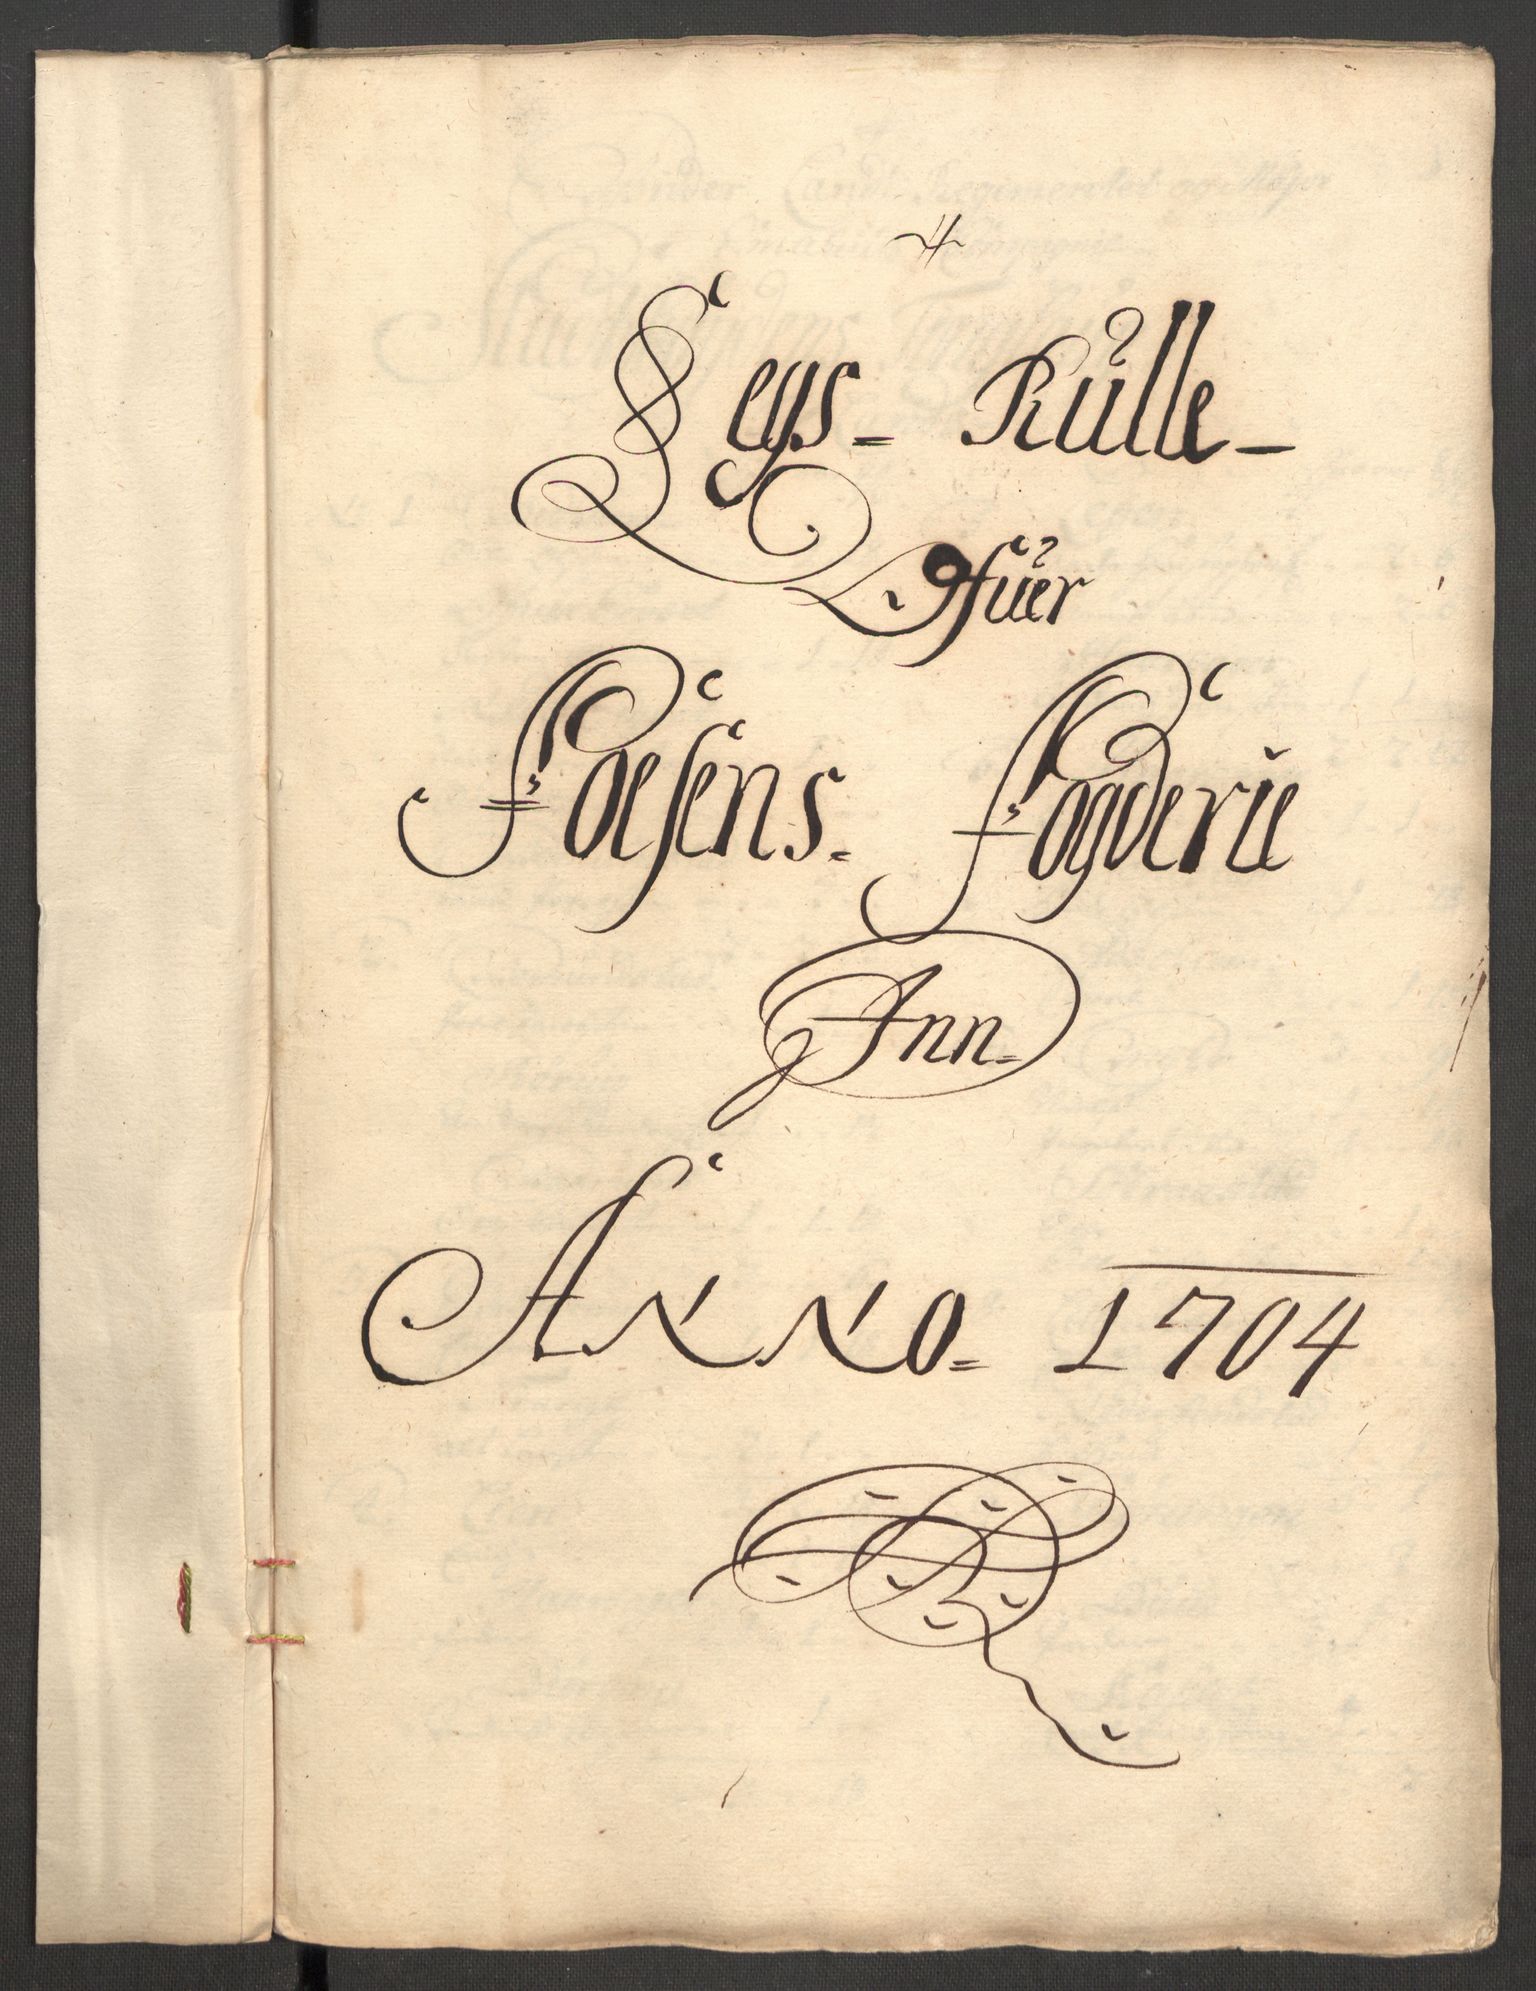 Legs- Rulle-
Ofuer
Foesens- Fogderie
Ann-
Anno- 1704